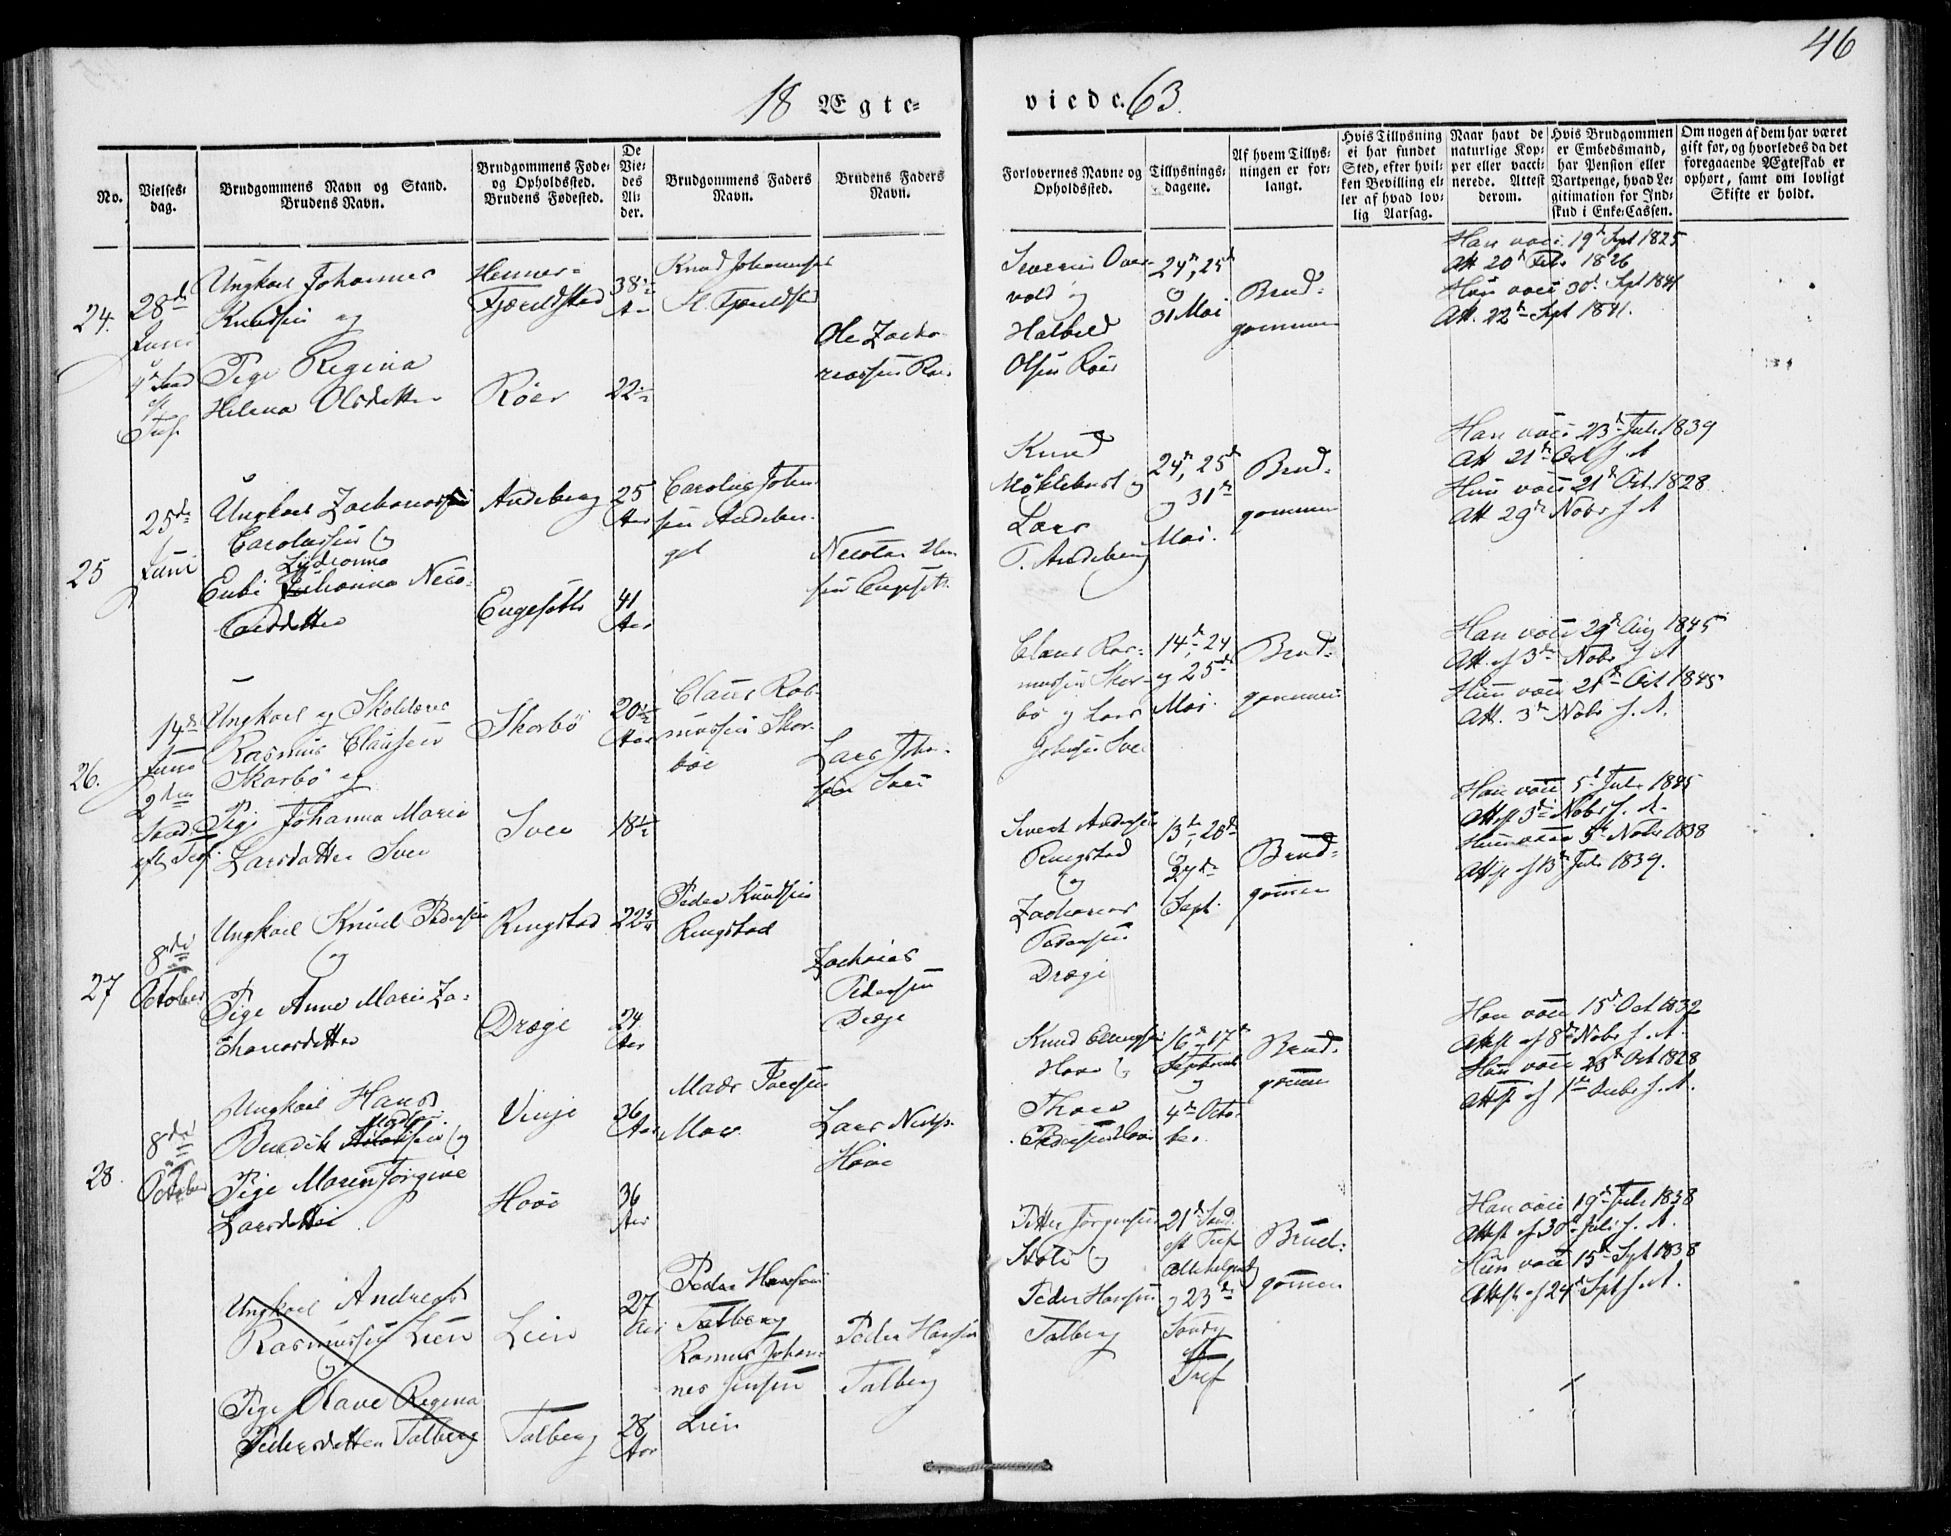 46
18 Ægte-
viede. 63.
No.
Vielses-
dag.
Brudgommens Navn og Stand.
Brudens Navn.
Brudgommens Føde-
og Opholdssted.
Brudens Fødested.
De
Vie-
des
Al-
der.
Brudgommens Faders
Navn.
Brudens Faders
Navn.
Forlovernes Navne og
Opholdssted.
Tillysnings-
dagene.
Af hvem Tillys-
ningen er for-
langt.
Hvis Tillysning
ei har fundet
Sted, efter hvil-
ken Bevilling el-
ler af hvad lov-
lig Aarsag.
Naar havt de
naturlige Kop-
per eller vacci-
nerede. Attest
derom.
Hvis Brudgommen
er Embedsmand,
har Pension eller
Vartpenge, hvad Le-
gitimation for Ind-
skud i Enke-Cassen.
Om nogen af dem har været
gift før, og hvorledes da det
foregaaende Ægteskab er
ophørt, samt om lovligt
Skifte er holdt.
24.
28de
Juni
Ungkarl Johannes
Knudsen og
Pige Regina
Helena Olsdatter
Fjærdstad
Røer
38½
Aar
22½
Knud Johannesen
Ole Zacha-
riassen Røer
Severin Over-
vold og
Olsen Røer
24de, 25de
og
31 Mai
Brud-
gommen
Han vacc. 19de Sept 1825
Att 20de Febr 1826
Hun vacc 20de Sept 1841
Att. 22de Sept 1841.
25
25de
Juni
Ungkarl Zachariassen
Carolussen og
Lydianna
Enke Johanna Nico-
laidatter
Andeberg
Engesætte
25
Aar
41
Aar
Carolus Johan-
sen Andeber-
get
Nicolai Han-
sen Engeset
Knud
Møklebust og
Lars
T. Andeberg
24de, 25de
og 31te
Mai.
Brud-
gommen
Han vacc. 23de Juli 1839
Att 21de Oct s. A
Hun vacc 21de Oct. 1828
Att 29de Novbr s A
26.
14de
Juni
Ungkarl og Skolelærer
Rasmus Clausen
Skorbø og
Pige Johanna Maria
Larsdatter Sven
Skorbø
Sven
20½
Aar
18½
Claus Ras-
mussen Skor-
bøe
Lars Johan-
sen Sven
Claus Ras-
mussen Skor-
bø og Lars
Johansen Sven
14de, 24
og 25de
Mai.
Brud-
gommen
Han vacc 29de Aug 1845
Att. af 3de Novbr s A
Hun vacc 21de Oct 1845
Att. 3de Novbr s. A.
27
8de
October
Ungkarl Knud Pedersen
og
Pige Anne Marie Za-
chariasdatter
Ringstad
Drage
22¾
24
Aar
Peder Knudsen
Ringstad
Zacharias
Pedersen
Drage
Sivert Andersen
Ringstad
og
Zacharias
Pedersen
Drage
13de, 20de
og
27de
Sept.
Brud-
gommen
Han vacc 5te Juli 1845
Att. 3de Novbr s. A.
Hun vacc 5te Novbr 1838
Attest af 13de Juli 1839.
28.
8de
October
Ungkarl Hans
Bendik Madsen og
Pige Maren Jørgine
Larsdatter
Vinje
Hove
26
Aar
36
Aar
Mads
Moe
Lars Nielsen
Hove
Knud
Hove og
Thore
Pedersen Hove
16de 17de
September
og
4de Octo-
ber.
Brud-
gommen
Han vacc 15de Oct 1832
Attest af 8de Novbr s. A.
Hun vacc 23de Oct 1828
Attest af 1ste Decbr s. A.
Ungkarl Andreas
Rasmussen Lien
og
Pige Olave Regina
Pedersdatter Talberg
Lien
Talberg
27
Aar
28
Aar
Peder Hansen
Talberg
Rasmus Johan-
nes Jensen
Lien
Peder Hansen
Talberg
Petter Jørgensen
og
Peder Hansen
Talberg
21de Sønd.
eft Tref
Allehelgensd
og 23de
Søndg
eft
Tref
Brud-
gommen
Han vacc 19de Juli 1838
Attest af 30te Juli s. A.
Hun vacc 15de Sept 1838
Attest af 24de Sept s. A.